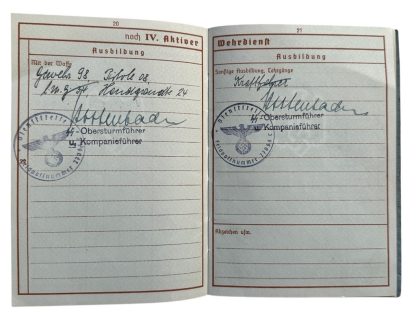 20
noch IV. Aktiver
Ausbildung
Mit der Waffe
Gewehr 98, Pistole 08,
l.M.G. 34, Handgranate 24
ᛋᛋ-Obersturmführer
u. Kompanieführer
Dienststelle
Feldpostnummer
21
Wehrdienst
Ausbildung
Sonstige Ausbildung, Lehrgänge
Kraftfahrer
ᛋᛋ-Obersturmführer
u. Kompanieführer
Dienststelle
Feldpostnummer
Abzeichen usw.